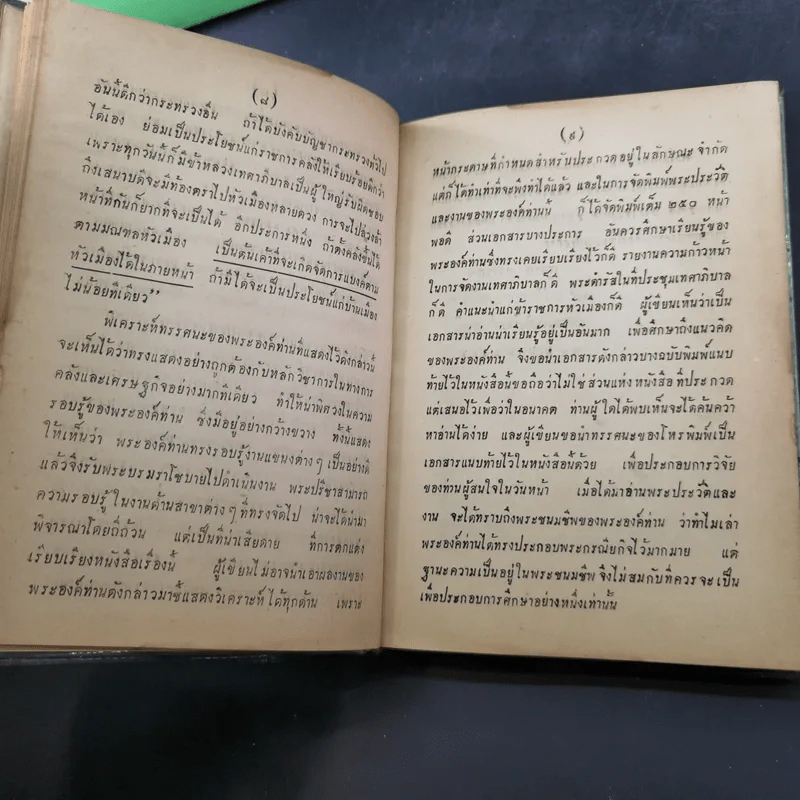 (๘)
อันนี้ดีกว่ากระทรวงอื่น ถ้าได้บังคับบัญชากระทรวงทั่วไป
ได้เอง ย่อมเป็นประโยชน์แก่ราชการคลังให้เรียบร้อยดีกว่า
เพราะทุกวันนี้ก็มีข้าหลวงเทศาภิบาลเป็นผู้ใหญ่รับผิดชอบ
ถึงเสนาบดีจะมีท้องตราไปหัวเมืองหลายดวง การจะไปล่วงล้ำ
หน้าที่กันก็ยากที่จะเป็นได้ อีกประการหนึ่ง ถ้าตั้งคลังขึ้นได้
ตามมณฑลหัวเมือง เป็นต้นเค้าที่จะเกิดจัดการแบงค์ตาม
หัวเมืองได้ในภายหน้า ถ้ามีได้จะเป็นประโยชน์แก่บ้านเมือง
ไม่น้อยทีเดียว”
พิเคราะห์ทรรศนะของพระองค์ท่านที่แสดงไว้ดังกล่าวนี้
จะเห็นได้ว่าทรงแสดงอย่างถูกต้องกับหลักวิชาการในทางการ
คลังและเศรษฐกิจอย่างมากทีเดียว ทำให้น่าพิศวงในความ
รอบรู้ของพระองค์ท่าน ซึ่งมีอยู่อย่างกว้างขวาง ทั้งนี้แสดง
ให้เห็นว่า พระองค์ท่านทรงรอบรู้งานแขนงต่างๆ เป็นอย่างดี
แล้วจึงรับพระบรมราโชบายไปดำเนินงาน พระปรีชาสามารถ
ความรอบรู้ ในงานด้านสาขาต่างๆ ที่ทรงจัดไป น่าจะได้นำมา
พิจารณาโดยถี่ถ้วน แต่เป็นที่น่าเสียดาย ที่การตกแต่ง
เรียบเรียงหนังสือเรื่องนี้ ผู้เขียนไม่อาจนำเอาผลงานของ
พระองค์ท่านดังกล่าวมาชี้แสดงวิเคราะห์ได้ทุกด้าน เพราะ
(๙)
หน้ากระดาษที่กำหนดสำหรับประกวดอยู่ในลักษณะจำกัด
แต่ก็ได้ทำเท่าที่จะพึงทำได้แล้ว และในการจัดพิมพ์พระประวัติ
และงานของพระองค์ท่านนี้ ก็ได้จัดพิมพ์เต็ม ๒๕๐ หน้า
พอดี ส่วนเอกสารบางประการ อันควรศึกษาเรียนรู้ของ
พระองค์ท่านซึ่งทรงเคยเรียบเรียงไว้ก็ดี รายงานความก้าวหน้า
ในการจัดงานเทศาภิบาลก็ดี พระดำรัสในที่ประชุมเทศาภิบาล
ก็ดี คำแนะนำแก่ข้าราชการหัวเมืองก็ดี ผู้เขียนเห็นว่าเป็น
เอกสารน่าอ่านน่าเรียนรู้อยู่เป็นอันมาก เพื่อศึกษาถึงแนวคิด
ของพระองค์ท่าน จึงขอนำเอกสารดังกล่าวบางฉบับพิมพ์แนบ
ท้ายไว้ในหนังสือนี้ ขอถือว่าไม่ใช่ส่วนแห่งหนังสือที่ประกวด
แต่เสนอไว้เพื่อว่าในอนาคต ท่านผู้ใดได้พบเห็นจะได้ค้นคว้า
หาอ่านได้ง่าย และผู้เขียนขอนำทรรศนะของโหรพิมพ์เป็น
เอกสารแนบท้ายไว้ในหนังสือนี้ด้วย เพื่อประกอบการวิจัย
ของท่านผู้สนใจในวันหน้า เมื่อได้มาอ่านพระประวัติและ
งาน จะได้ทราบถึงพระชนมชีพของพระองค์ท่าน ว่าทำไมเล่า
พระองค์ท่านได้ทรงประกอบพระกรณียกิจไว้มากมาย แต่
ฐานะความเป็นอยู่ในพระชนมชีพ จึงไม่สมกับที่ควรจะเป็น
เพื่อประกอบการศึกษาอย่างหนึ่งเท่านั้น